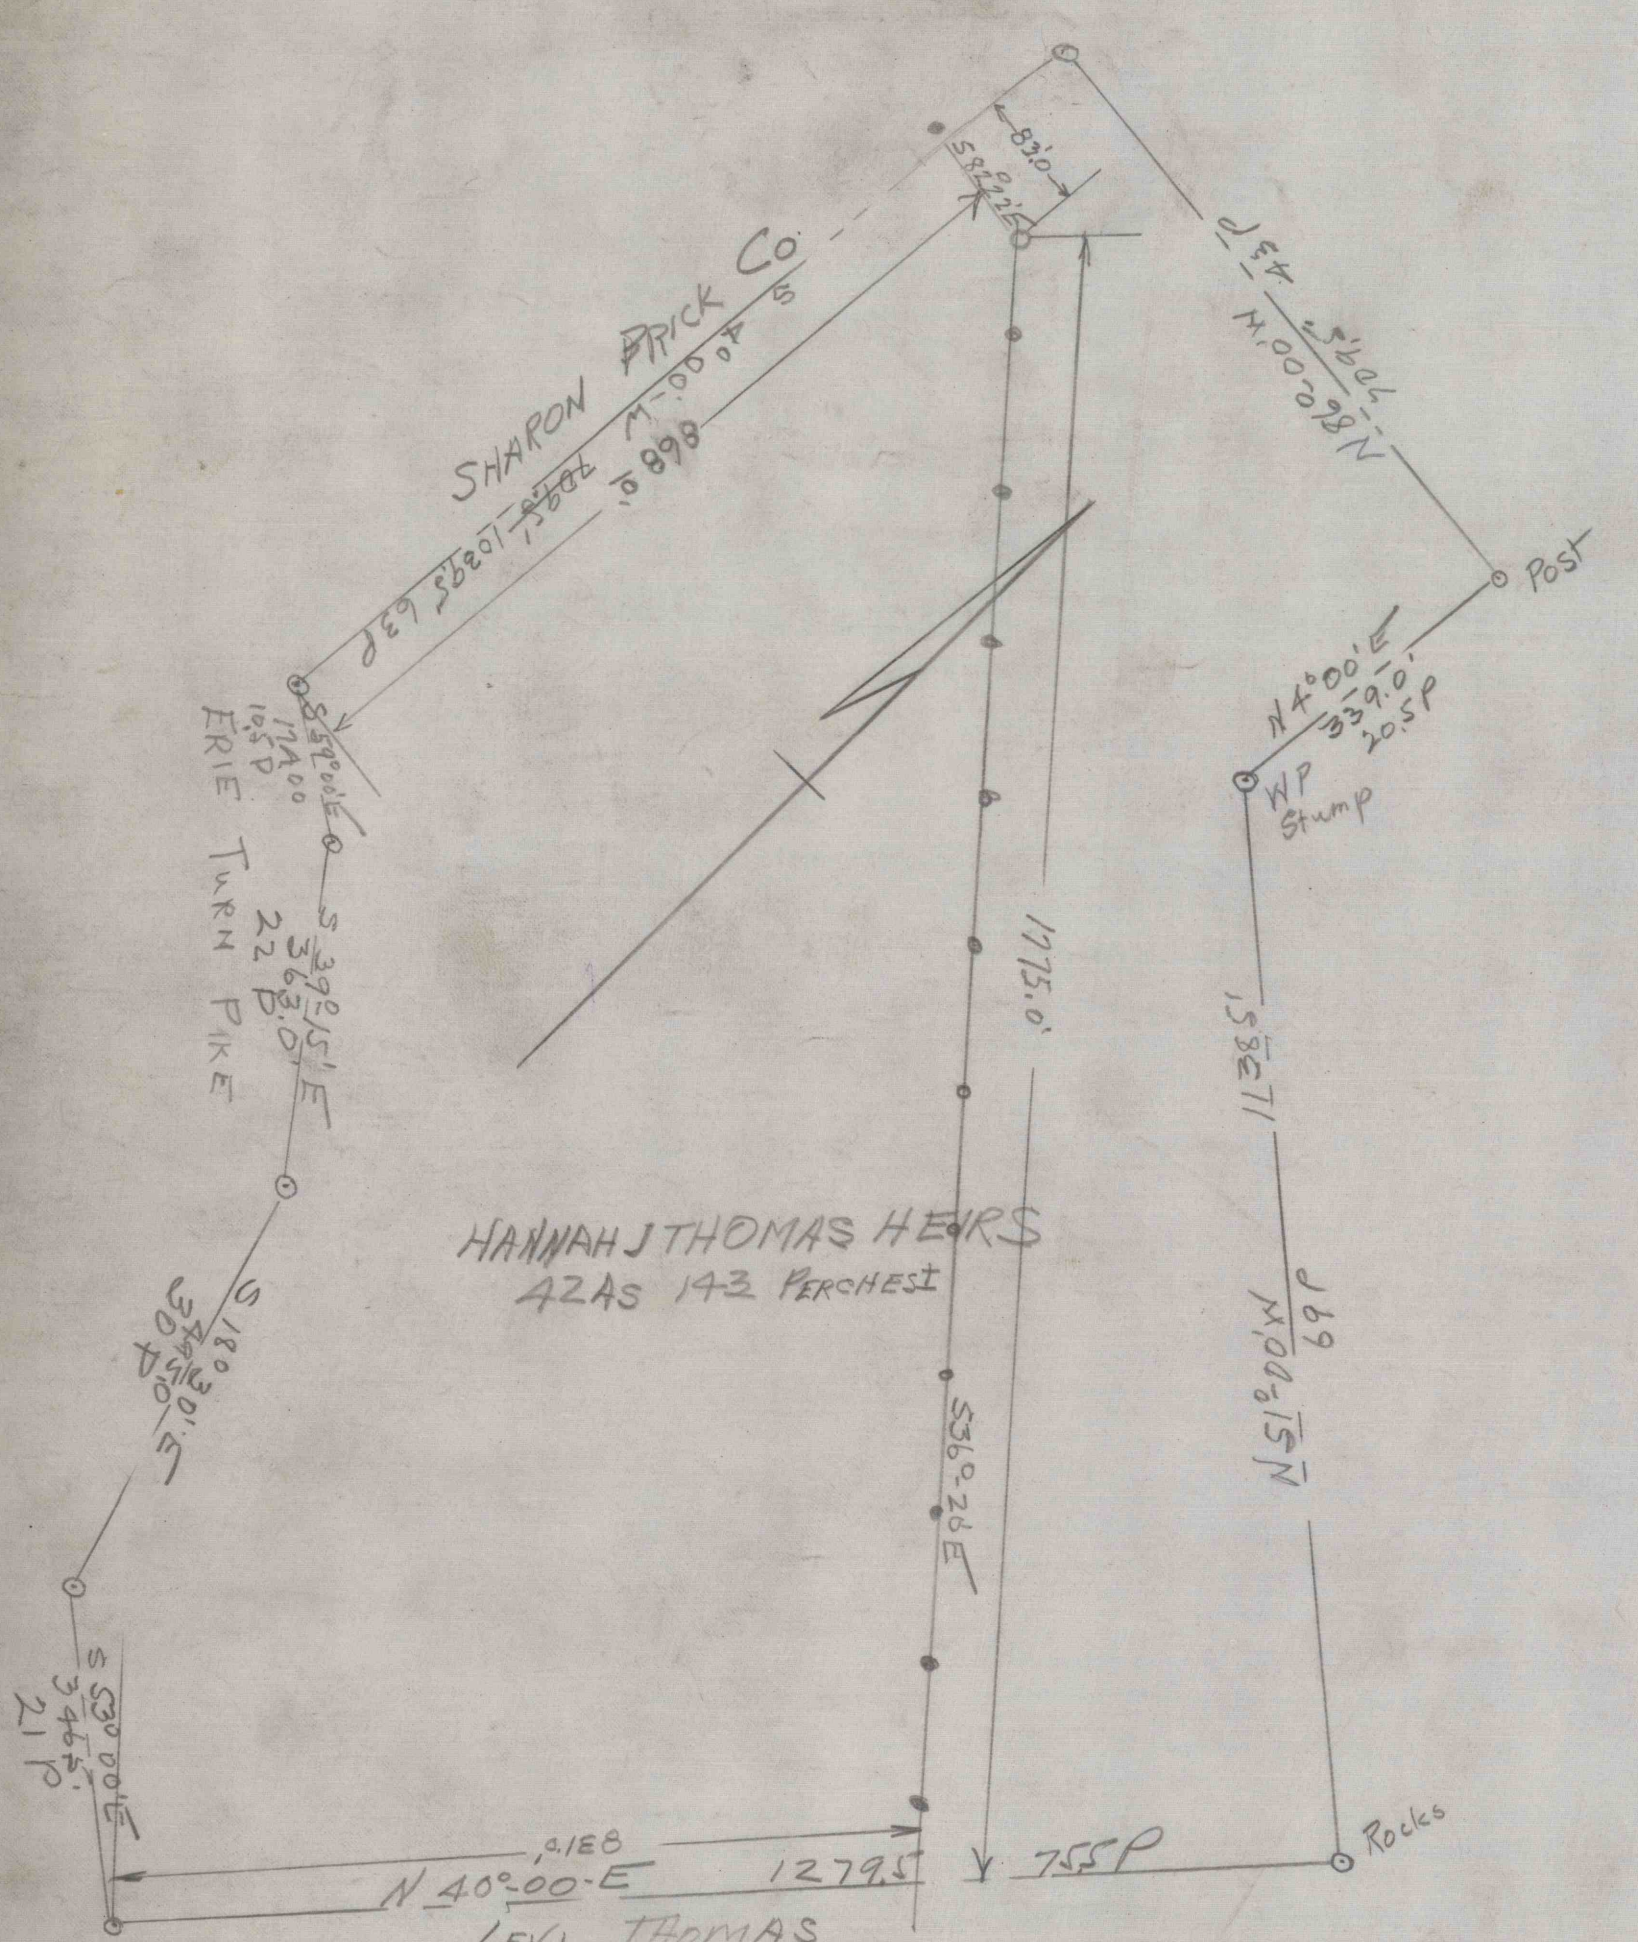 83.0'
S82°22'E
43 P
N 86°-00'W
709.5'
SHARON BRICK Co.
S 4° 00'-W
868.0'
709.5' 1039.5' 63P
Post
N 4° 00' E
339.0'
20.5 P
WP
Stump
S 59°00'E
10.5 P
ERIE TURN PIKE
S 39°-15' E
363.0'
22 P
1775.0'
1138.5'
69 P
N 51°-00'W
HANNAH J THOMAS HEIRS
42 AS 143 PERCHES±
S 18° 30' E
495.0'
30 P
S36°-26 E
S 53° 00' E
346.5'
21 P
831.0'
N 40°-00-E 1279.5 75.5 P
Rocks
LEVI THOMAS